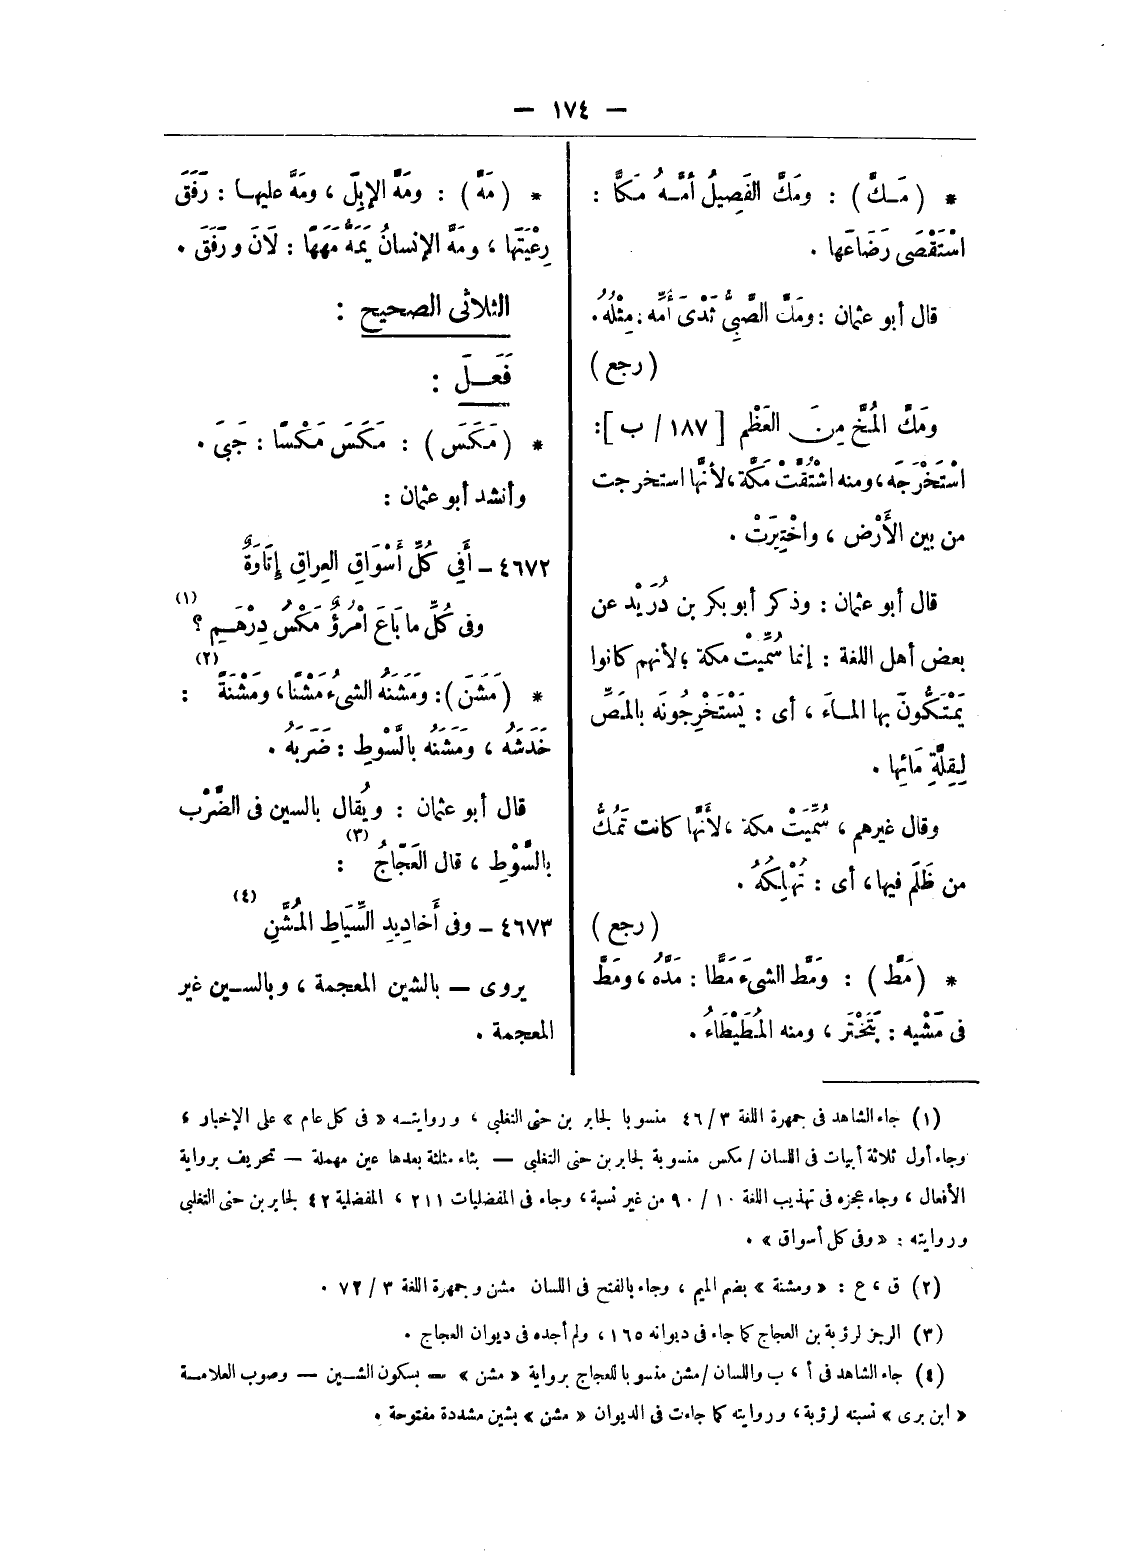 — ١٧٤ —
* ( مَـكَّ ) : ومَكَّ الفَصِيلُ أمَّـهُ مَكًّا :
اسْتَقْصَى رَضَاعَها .
قال أبو عثمان : ومَكَّ الصَّبِيُّ ثَدْىَ أُمِّه : مِثْلُهُ .
( رجع )
ومَكَّ المُخَّ مِنَ العَظْم [ ١٨٧ / ب ] :
اسْتَخْرَجَه ، ومنه اشْتُقَّتْ مَكَّة ، لأنَّها استخرجت
من بين الأَرْضِ ، واخْتِيرَتْ .
قال أبو عثمان : وذكر أبو بكر بن دُرَيْد عن
بعض أهل اللغة : إنما سُمِّيتْ مكة ؛ لأنهم كانوا
يَمْتَكُّونَ بها المـاءَ ، أى : يَسْتَخْرِجُونَه بالمَصِّ
لِقِلَّةِ مَائِها .
وقال غيرهم ، سُمِّيَتْ مكة ، لأَنَّها كانت تَمُكُّ
من ظَلَم فيها ، أى : تُهْلِكُهُ .
( رجع )
* ( مَطَّ ) : ومَطَّ الشىءَ مَطًّا : مَدَّهُ ، ومَطَّ
فى مَشْيِه : تَبَخْتَر ، ومنه المُطَيْطَاءُ .
* ( مَهَّ ) : ومَهَّ الإِبِلَ ، ومَهَّ عليهـا : رَفَقَ
رِعْيَتَها ، ومَهَّ الإنسانُ يَمَهُّ مَهَهًا : لَانَ ورَفَقَ .
الثلاثى الصحيح :
فَعَـلَ :
* ( مَكَسَ ) : مَكَسَ مَكْسًا : جَبَىَ .
وأنشد أبو عثمان :
٤٦٧٢ ـ أَفِي كُلِّ أَسْوَاقِ العِراقِ إِتَاوَةٌ
وفى كُلِّ ما بَاعَ امْرُؤٌ مَكْسُ دِرْهَـمِ ؟ (١)
* ( مَشَنَ ) : ومَشَنَهُ الشىءُ مَشْنًا ، ومَشْنَةً (٢) :
خَدَشَهُ ، ومَشَنَه بالسَّوْطِ : ضَرَبَهُ .
قال أبو عثمان : ويُقال بالسين فى الضَّرْب
بالسَّوْطِ ، قال العَجّاجُ (٣) :
٤٦٧٣ ـ وفى أَخادِيدِ السِّيَاطِ المُشَّنِ (٤)
يروى — بالشين المعجمة ، وبالســين غير
المعجمة .
(١) جاء الشاهد فى جمهرة اللغة ٣ / ٤٦ منسوبا لجابر بن حنى التغلبى ، وروايتــه « فى كل عام » على الإخبار ،
وجاء أول ثلاثة أبيات فى اللسان / مكس منسوبة لجابر بن حنى الثعلبى — بثاء مثلثة بعدها عين مهملة — تحريف برواية
الأفعال ، وجاء عجزه فى تهذيب اللغة ١٠ / ٩٠ من غير نسبة ، وجاء فى المفضليات ٢١١ ، المفضلية ٤٢ لجابر بن حنى التغلبى
وروايته : « وفى كل أسواق » .
(٢) ق ، ع : « ومشنة » بضم الميم ، وجاء بالفتح فى اللسان مشن وجمهرة اللغة ٣ / ٧٢ .
(٣) الرجز لرؤبة بن العجاج كما جاء فى ديوانه ١٦٥ ، ولم أجده فى ديوان العجاج .
(٤) جاء الشاهد فى أ ، ب واللسان / مشن منسوبا للعجاج برواية « مشن » — بسكون الشــين — وصوب العلامــة
« ابن برى » نسبته لرؤبة ، وروايته كما جاءت فى الديوان « مشن » بشين مشددة مفتوحة .